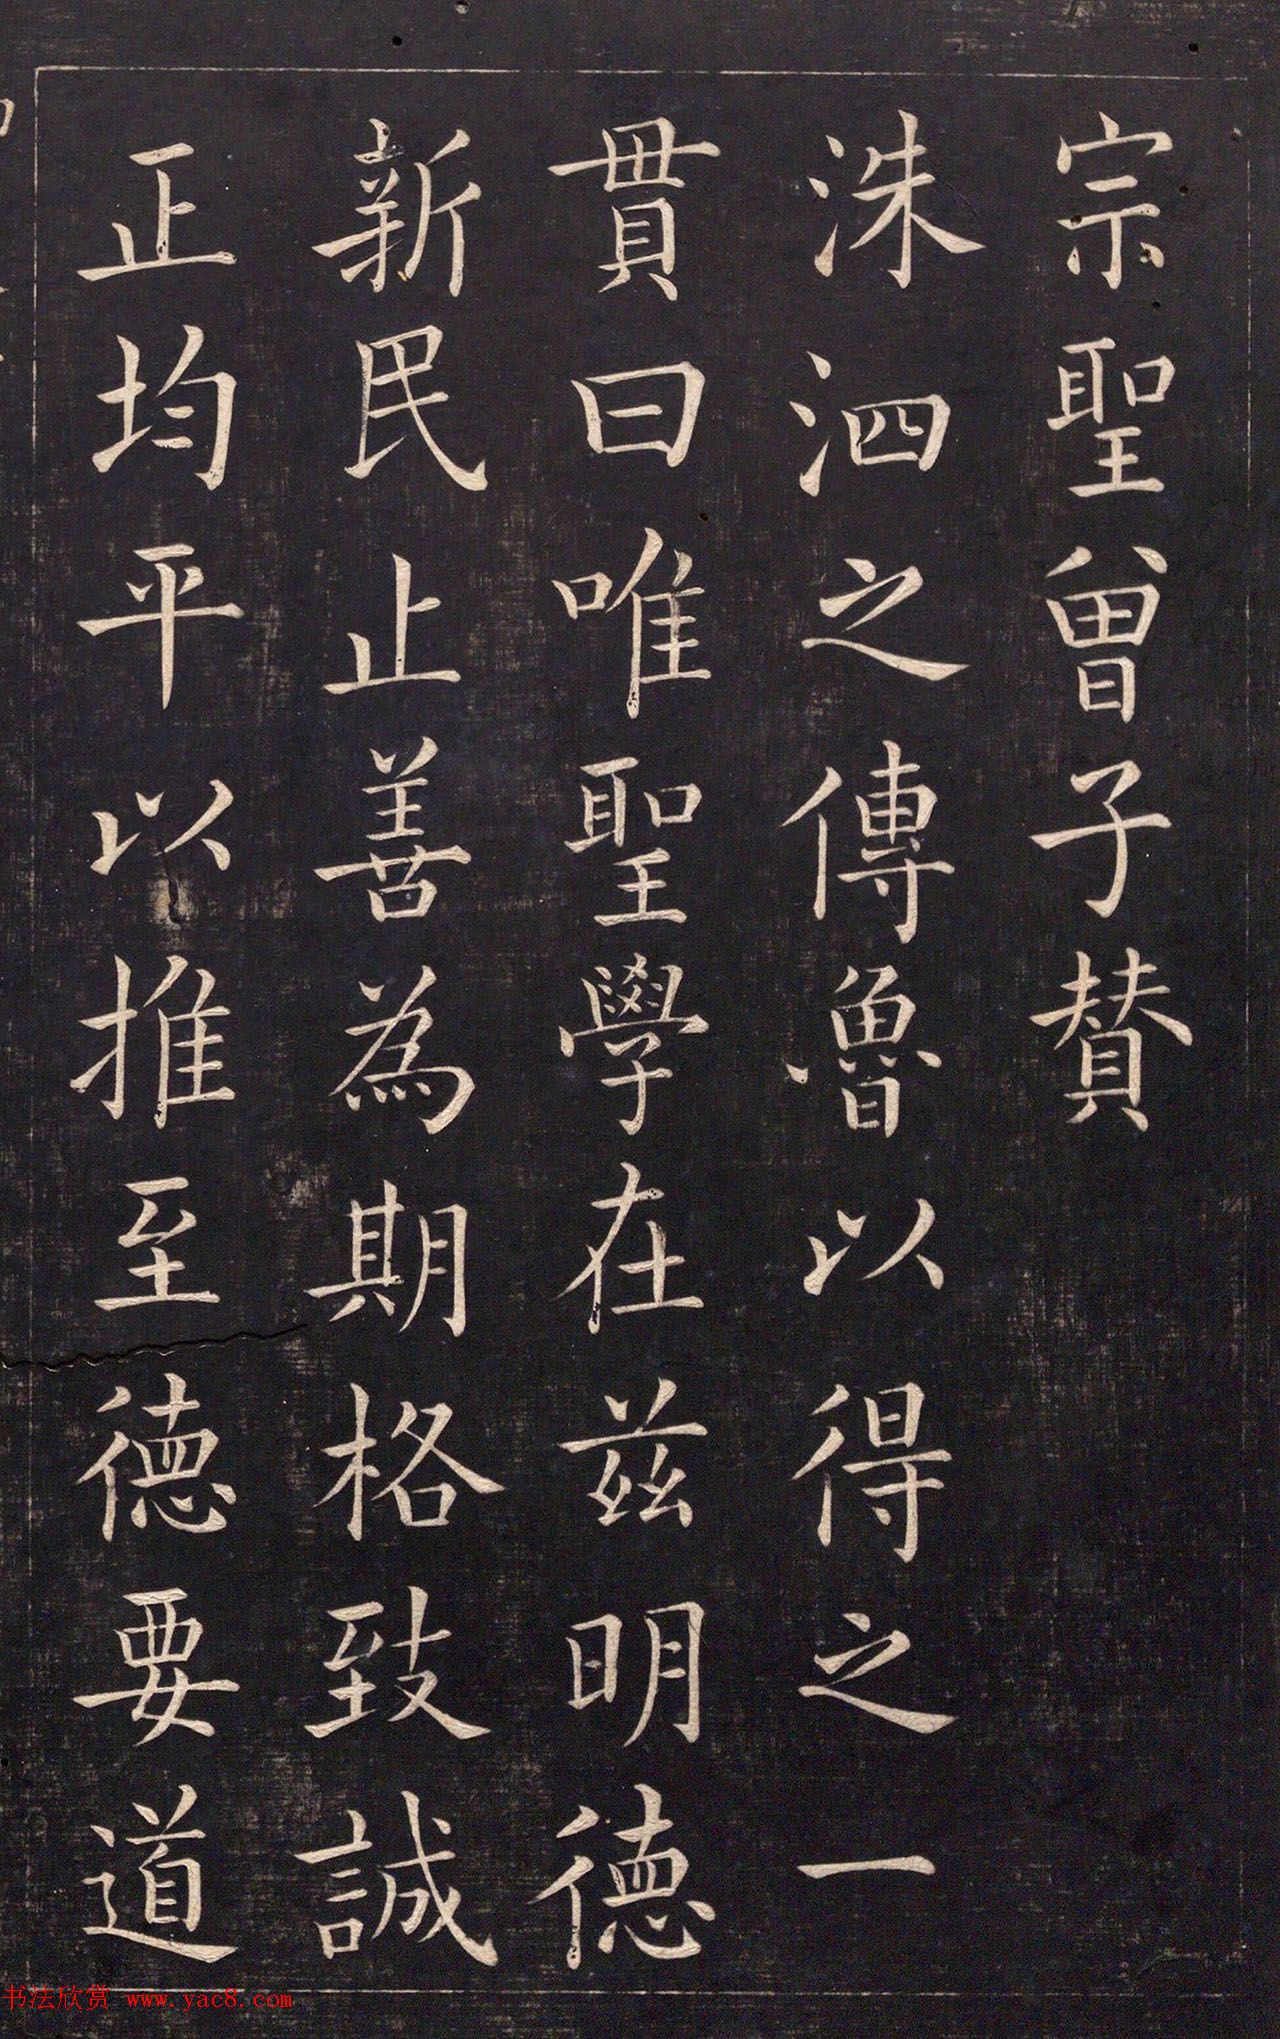 宗聖曾子贊
洙泗之傳魯以得之一
貫曰唯聖學在茲明德
新民止善為期格致誠
正均平以推至德要道
书法欣赏 www.yac8.com